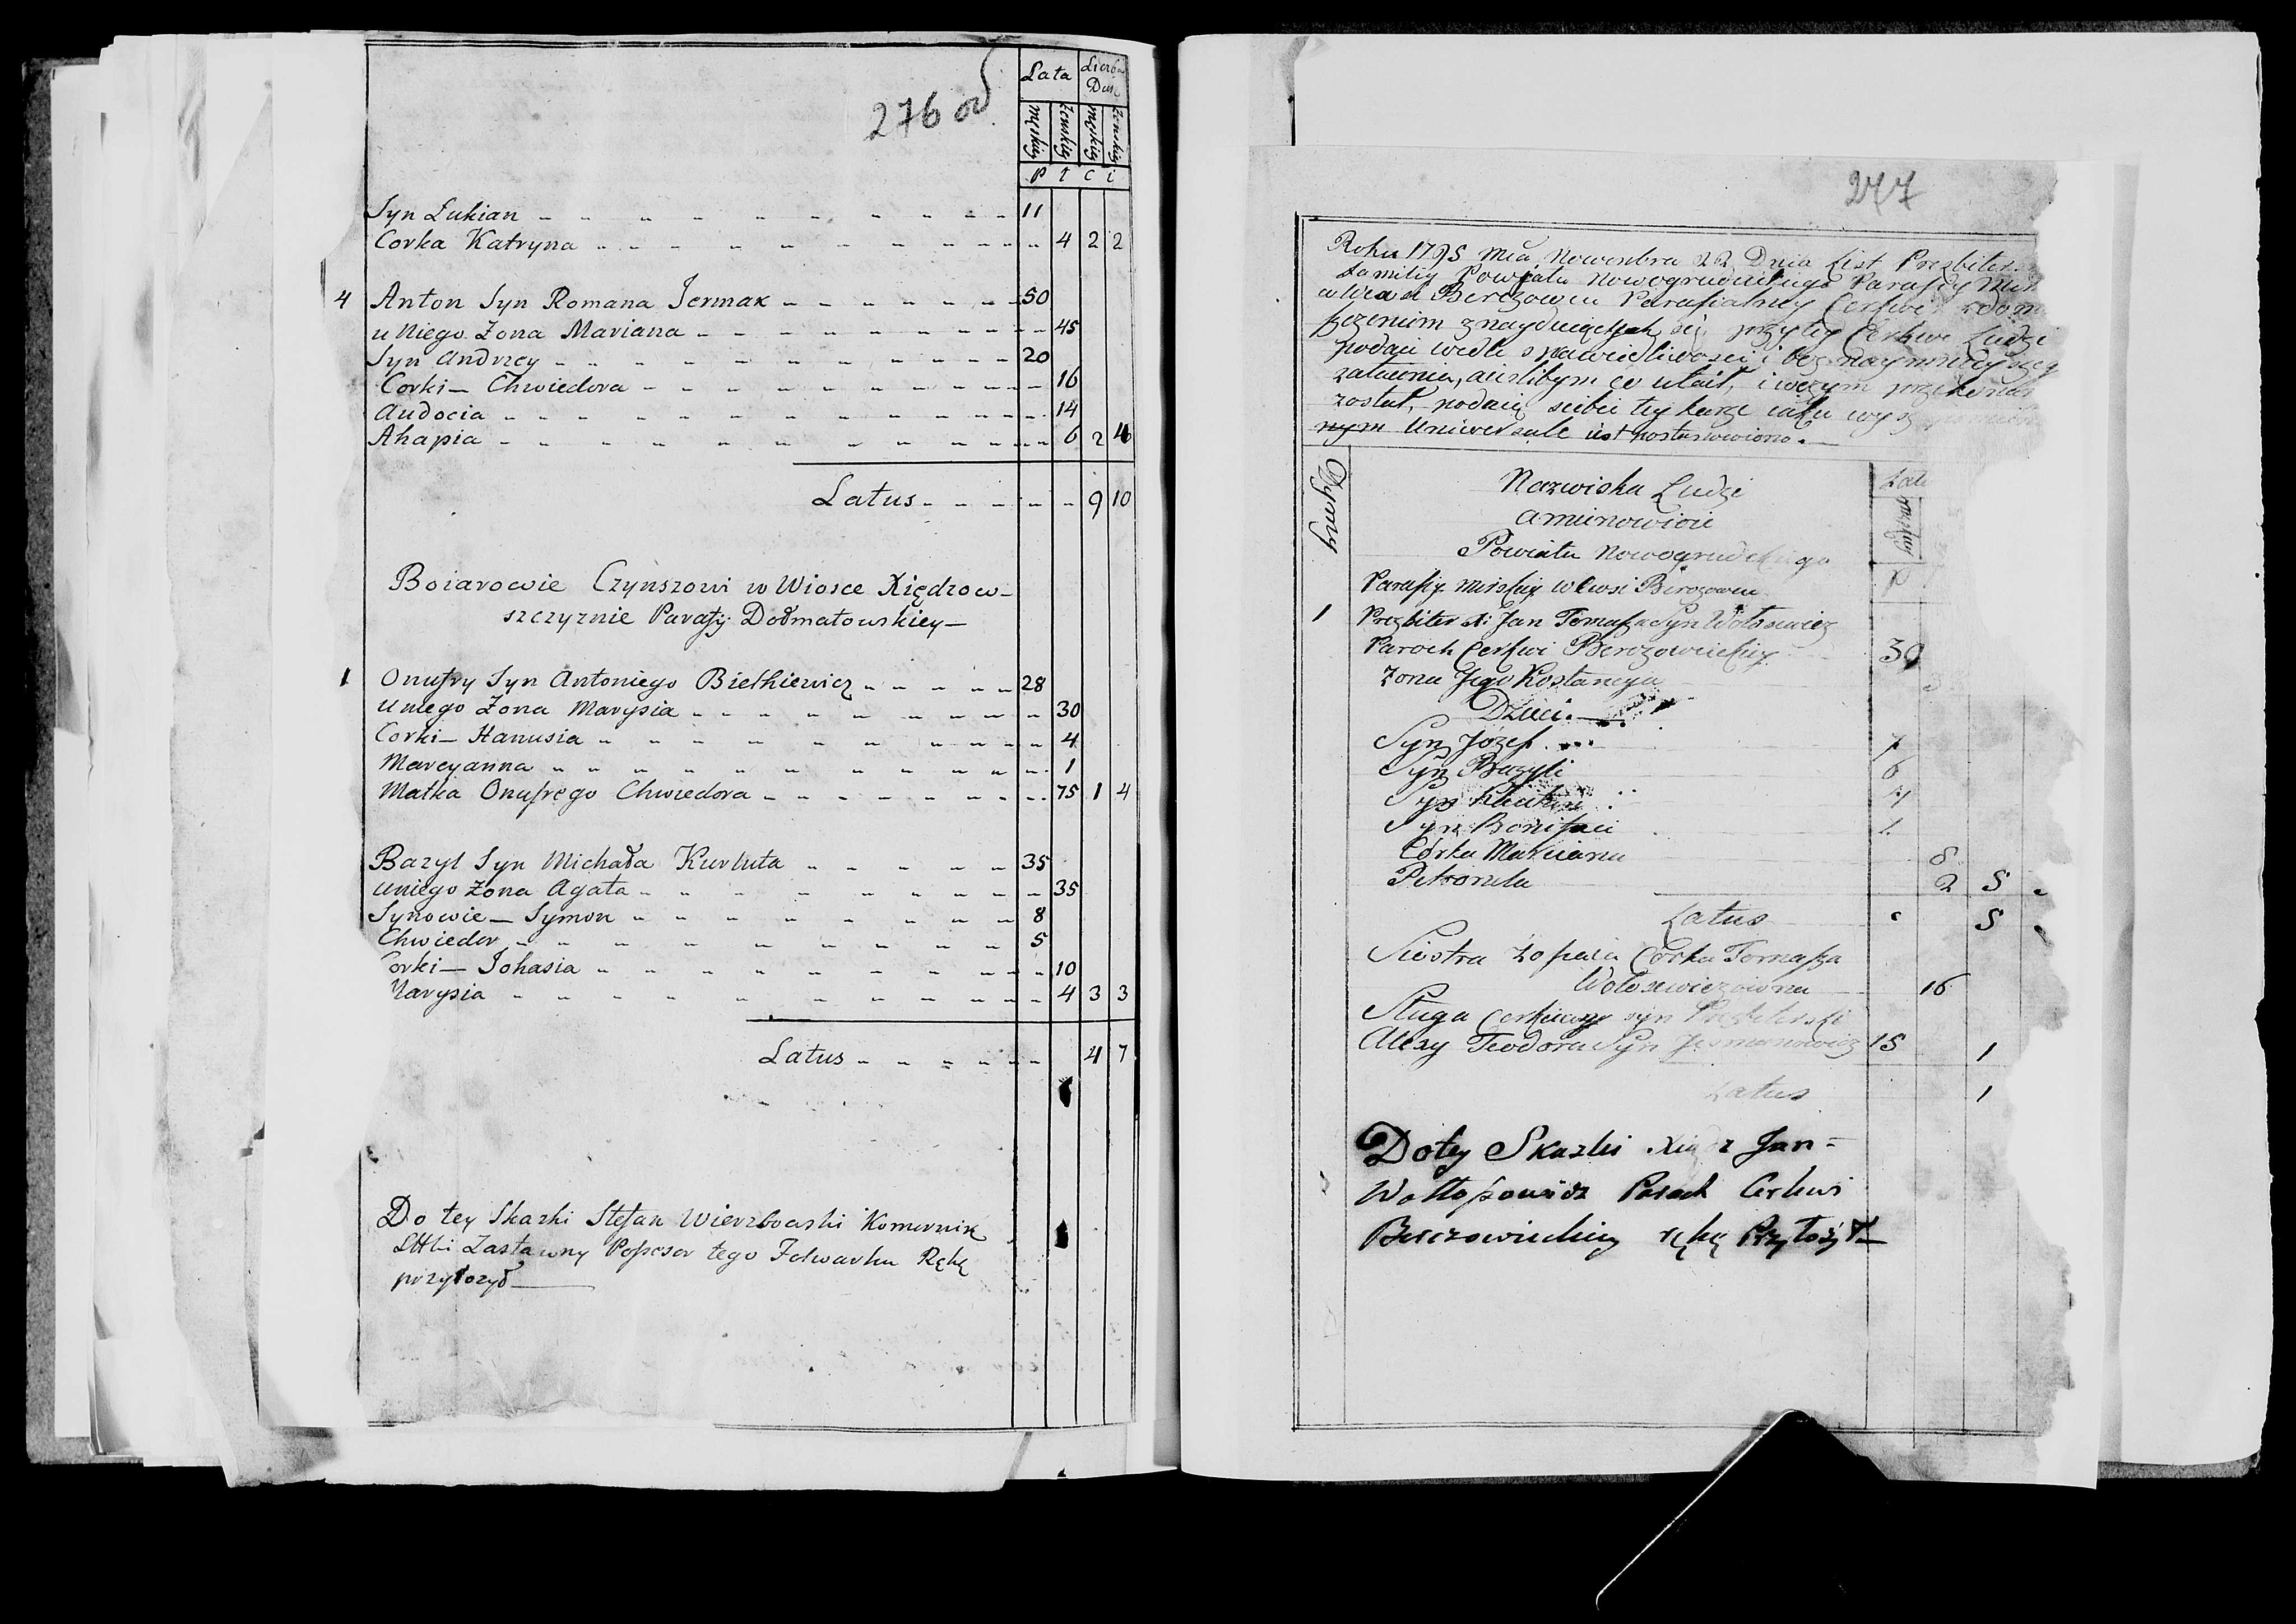 276 od
Lata Liczba Dusz
męskiey żenskiey męskiey żenskiey
P t c i
Syn Lukian 11
Corka Katryna 4 2 2
4 Anton Syn Romana Jermak 50
u Niego Żona Mariana 45
Syn Andrzey 20
Corki — Chwiedora 16
Audocia 14
Ahapia 6 2 4
Latus 9 10
Boiarowie Czynszowi w Wiosce Xiędzow-
szczyznie Parafij Dołmatowskiey —
1 Onufry Syn Antoniego Bielkiewicz 28
u niego Żona Marysia 30
Corki — Hanusia 4
Marcyanna 1
Matka Onufrego Chwiedora 75 1 4
Bazyl Syn Michała Kurluta 35
u niego Żona Agata 35
Synowie — Symon 8
Chwiedor 5
orki — Johasia 10
Marysia 4 3 3
Latus 4 7
Do tey Skazki Stefan Wierzbowski Komornik
Zastawny Possesor tego Folwarku Rękę
przyłozył
277
Roku 1795 Mca Nowembra 22 Dnia List
Familiy Powiatu Nowogrudzkiego Parafiy Mir
Berezowcu Parafialney Cerkwi
znayduiących się przy tey Cerkwi Ludzi
podaię wedle sprawiedliwosci i bez naymnieyszeg
zataienia, ieslibym co utaił, i w czym przekonan
został, podaię siebie tey karze iaka wyż
nym Uniwersale iest postanowiono. —
Dymy
Nazwiska Ludzi
a mianowicie
Powiatu Nowogrudzkiego
Parafiy Mirskiey w Wsi Berozowcu
Lat
męskiey
P
1 Prezbiter X: Jan Tomasza Syn Wołosewicz
Paroch Cerkwi Berozowieckiey 30
Żona Jego Kostancya
Dzieci. —
Syn Józef 7
Syn Bazyli 6
Syn 4
Syn Bonifaci 1
Córka Marcianna 8
Petronela 2 5
Latus 5
Siostra Zofija Córka Tomasza
Wołosewiczowna 16
Sługa Cerkiewny syn Prezbiterski
Alexy Teodora Syn 15 1
Latus 1
Do tey Skazki Xiądz Jan
Paroch Cerkwi
Berezowieckiey rękę Przyłożył —